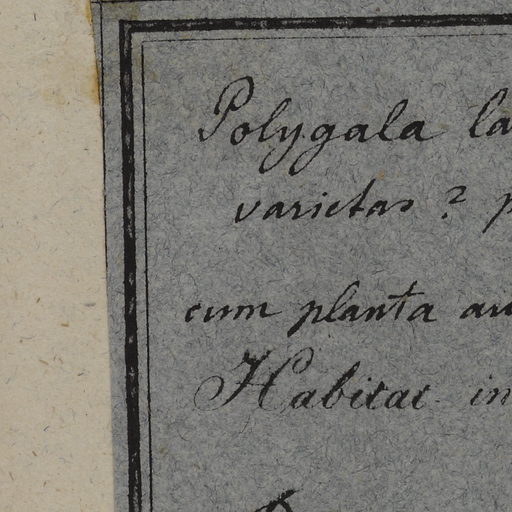 Polygala la
varietas ? p
cum planta au
Habitat in